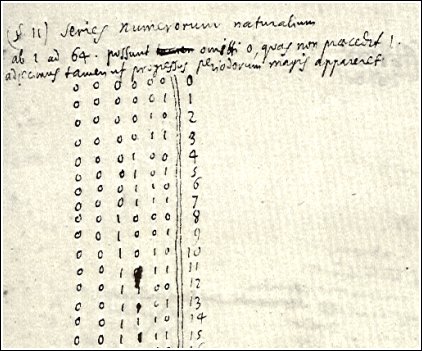 (§ 11) Series numerorum naturalium
ab 1 ad 64. possunt omitti 0, quas non praecedit 1.
adjecimus tamen ut progressus periodorum magis appareret
0 0 0 0 0 0 0
0 0 0 0 0 1 1
0 0 0 0 1 0 2
0 0 0 0 1 1 3
0 0 0 1 0 0 4
0 0 0 1 0 1 5
0 0 0 1 1 0 6
0 0 0 1 1 1 7
0 0 1 0 0 0 8
0 0 1 0 0 1 9
0 0 1 0 1 0 10
0 0 1 1 1 11
0 0 1 0 0 12
0 0 1 1 0 1 13
0 0 1 1 1 0 14
0 0 1 1 1 1 15